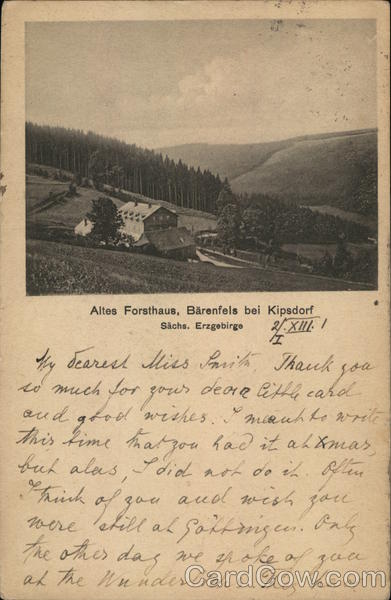 Altes Forsthaus, Bärenfels bei Kipsdorf
Sächs. Erzgebirge
2/XIII. 1
I
My dearest Miss Smith, Thank you
so much for your dear little card
and good wishes. I meant to write
this time that you had it at Xmas,
but alas, I did not do it. Often
I think of you and wish you
were still at Göttingen. Only
the other day we spoke of you
at the
CardCow.com